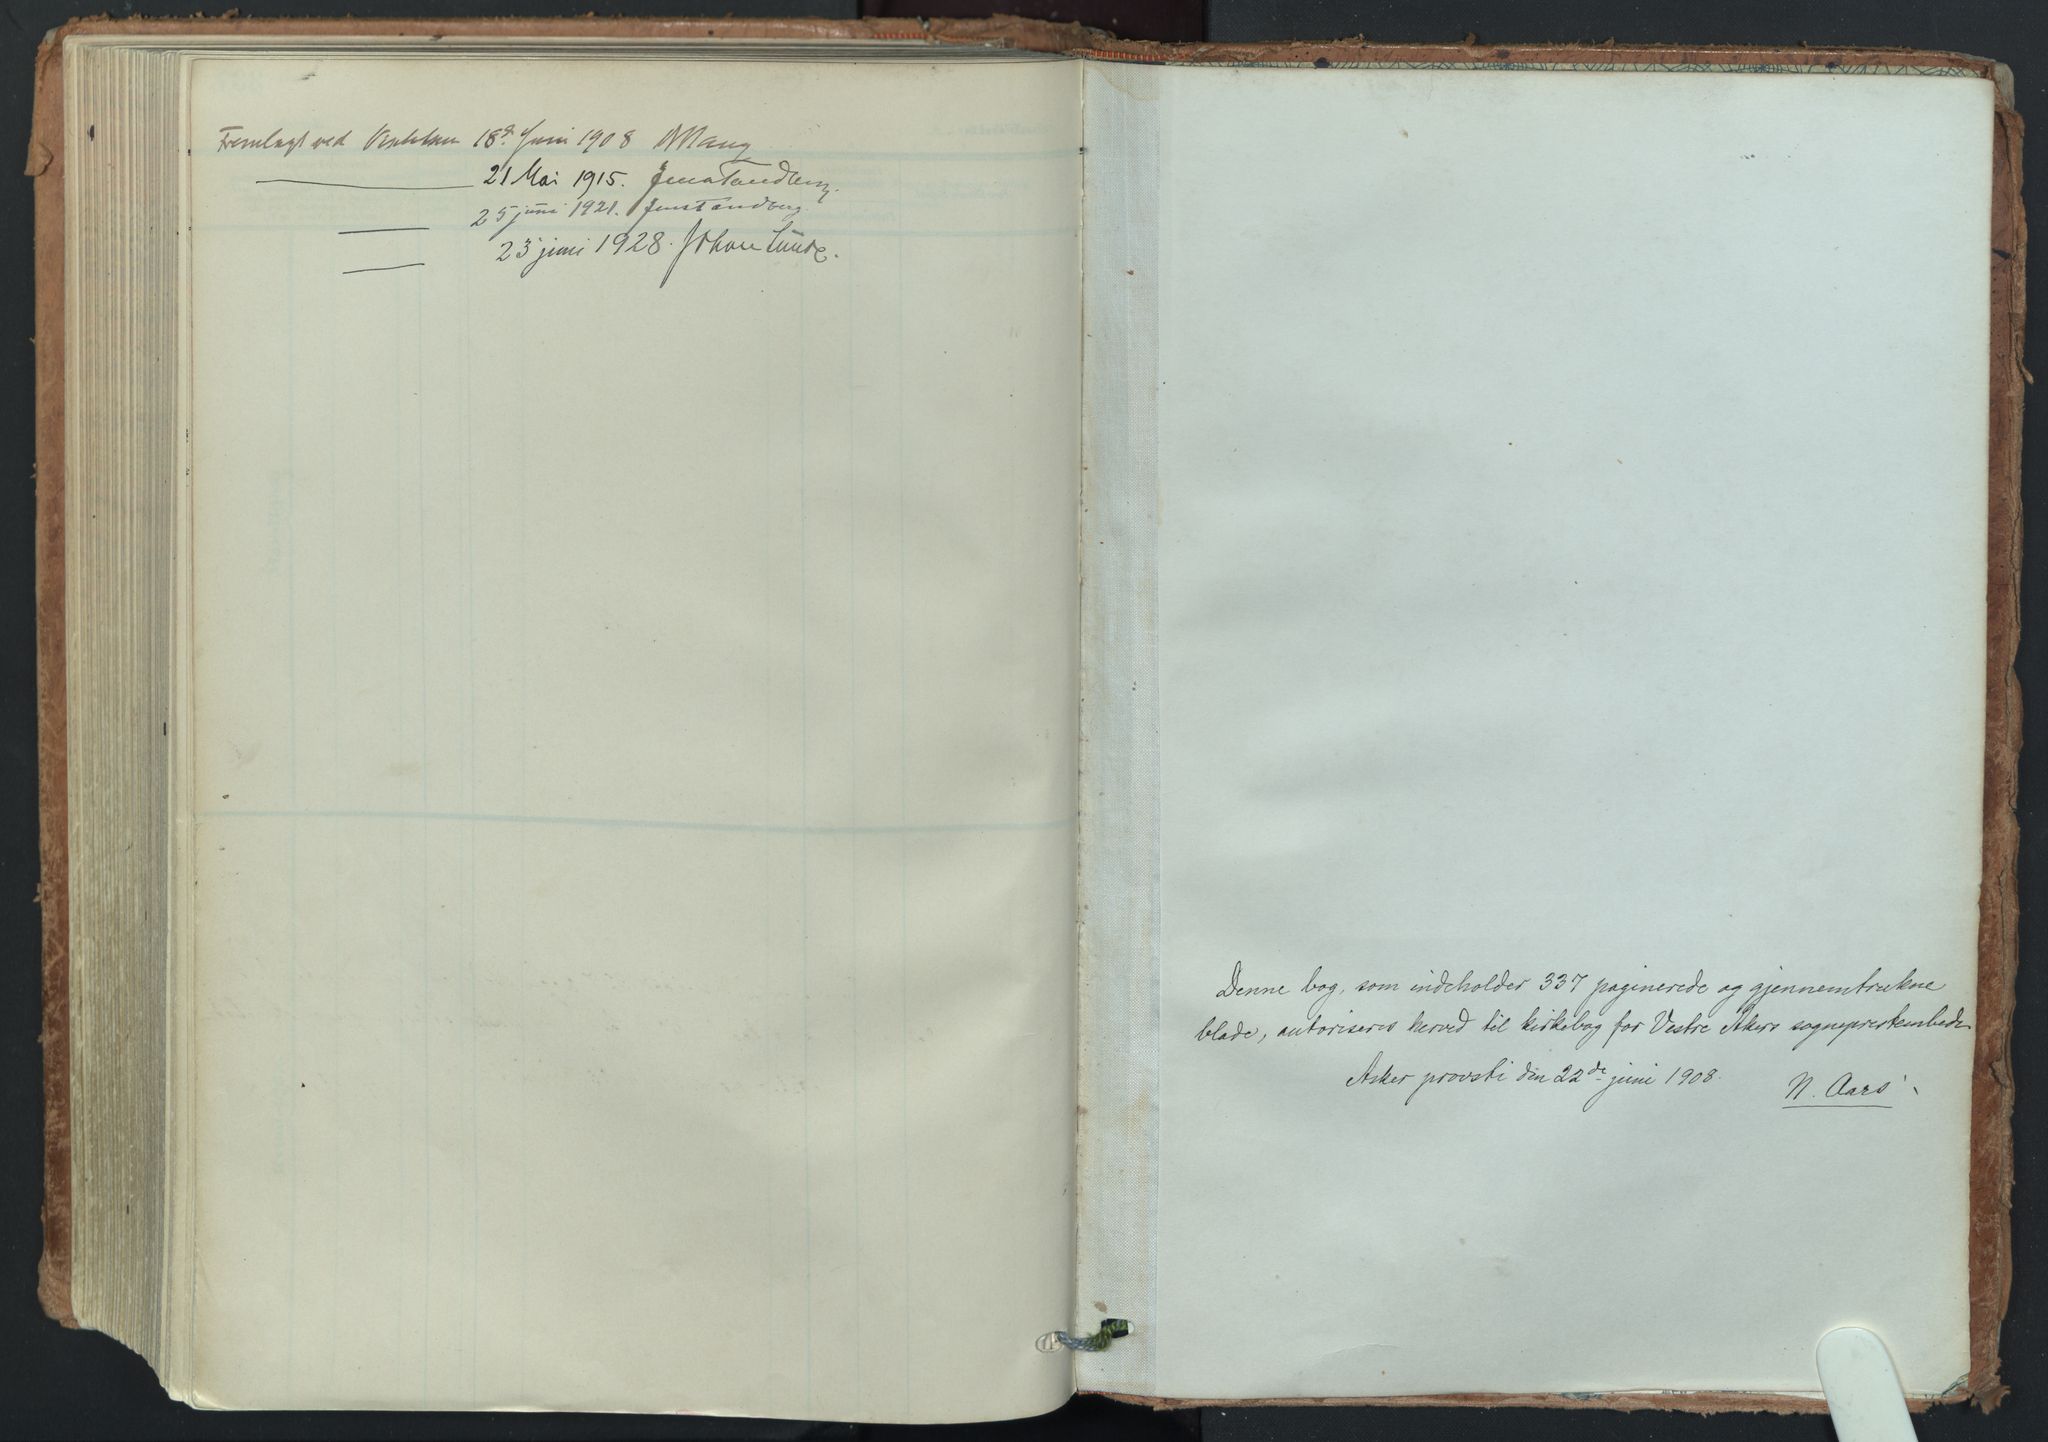 Fremlagt ved Visitatsen 18de Juni 1908
21 Mai 1915. Jens Tandberg.
25 juni 1921. Jens Tandberg.
23 juni 1928. Johan Lunde.
Denne bog, som indeholder 337 paginerede og gjennemtrukne
blade, autoriseres herved til kirkebog for Vestre Akers sogneprestembede
Asker provsti den 22de juni 1908.
N. Aars